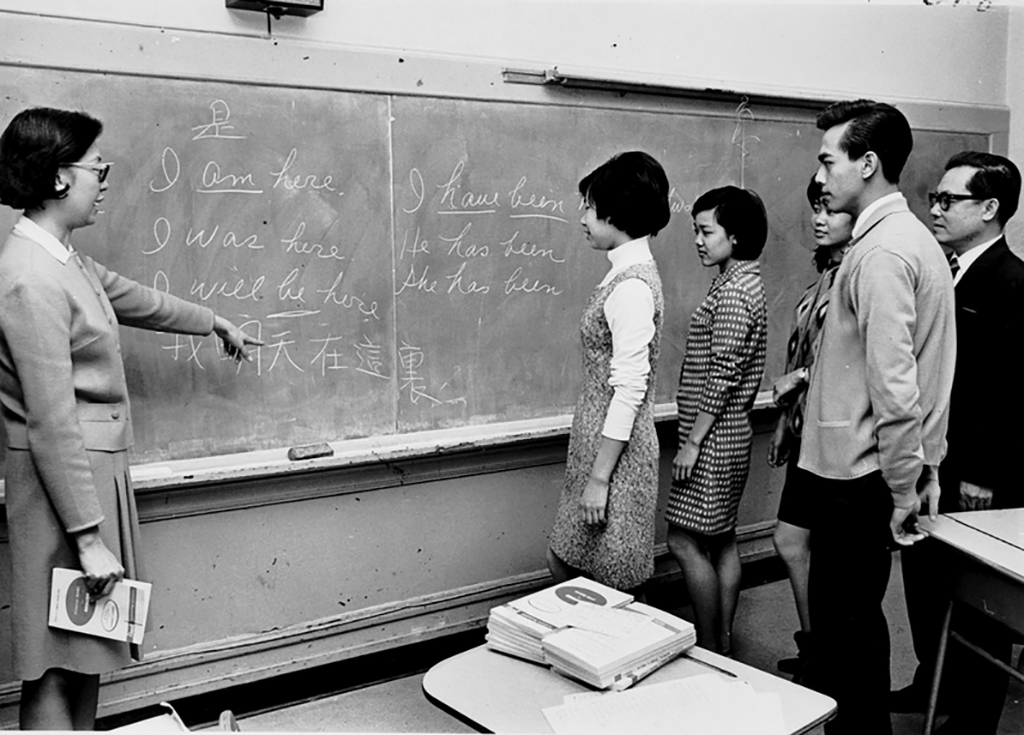 是
I am here.
I was here
I will be here
我明天在這裏
I have been
He has been
She has been